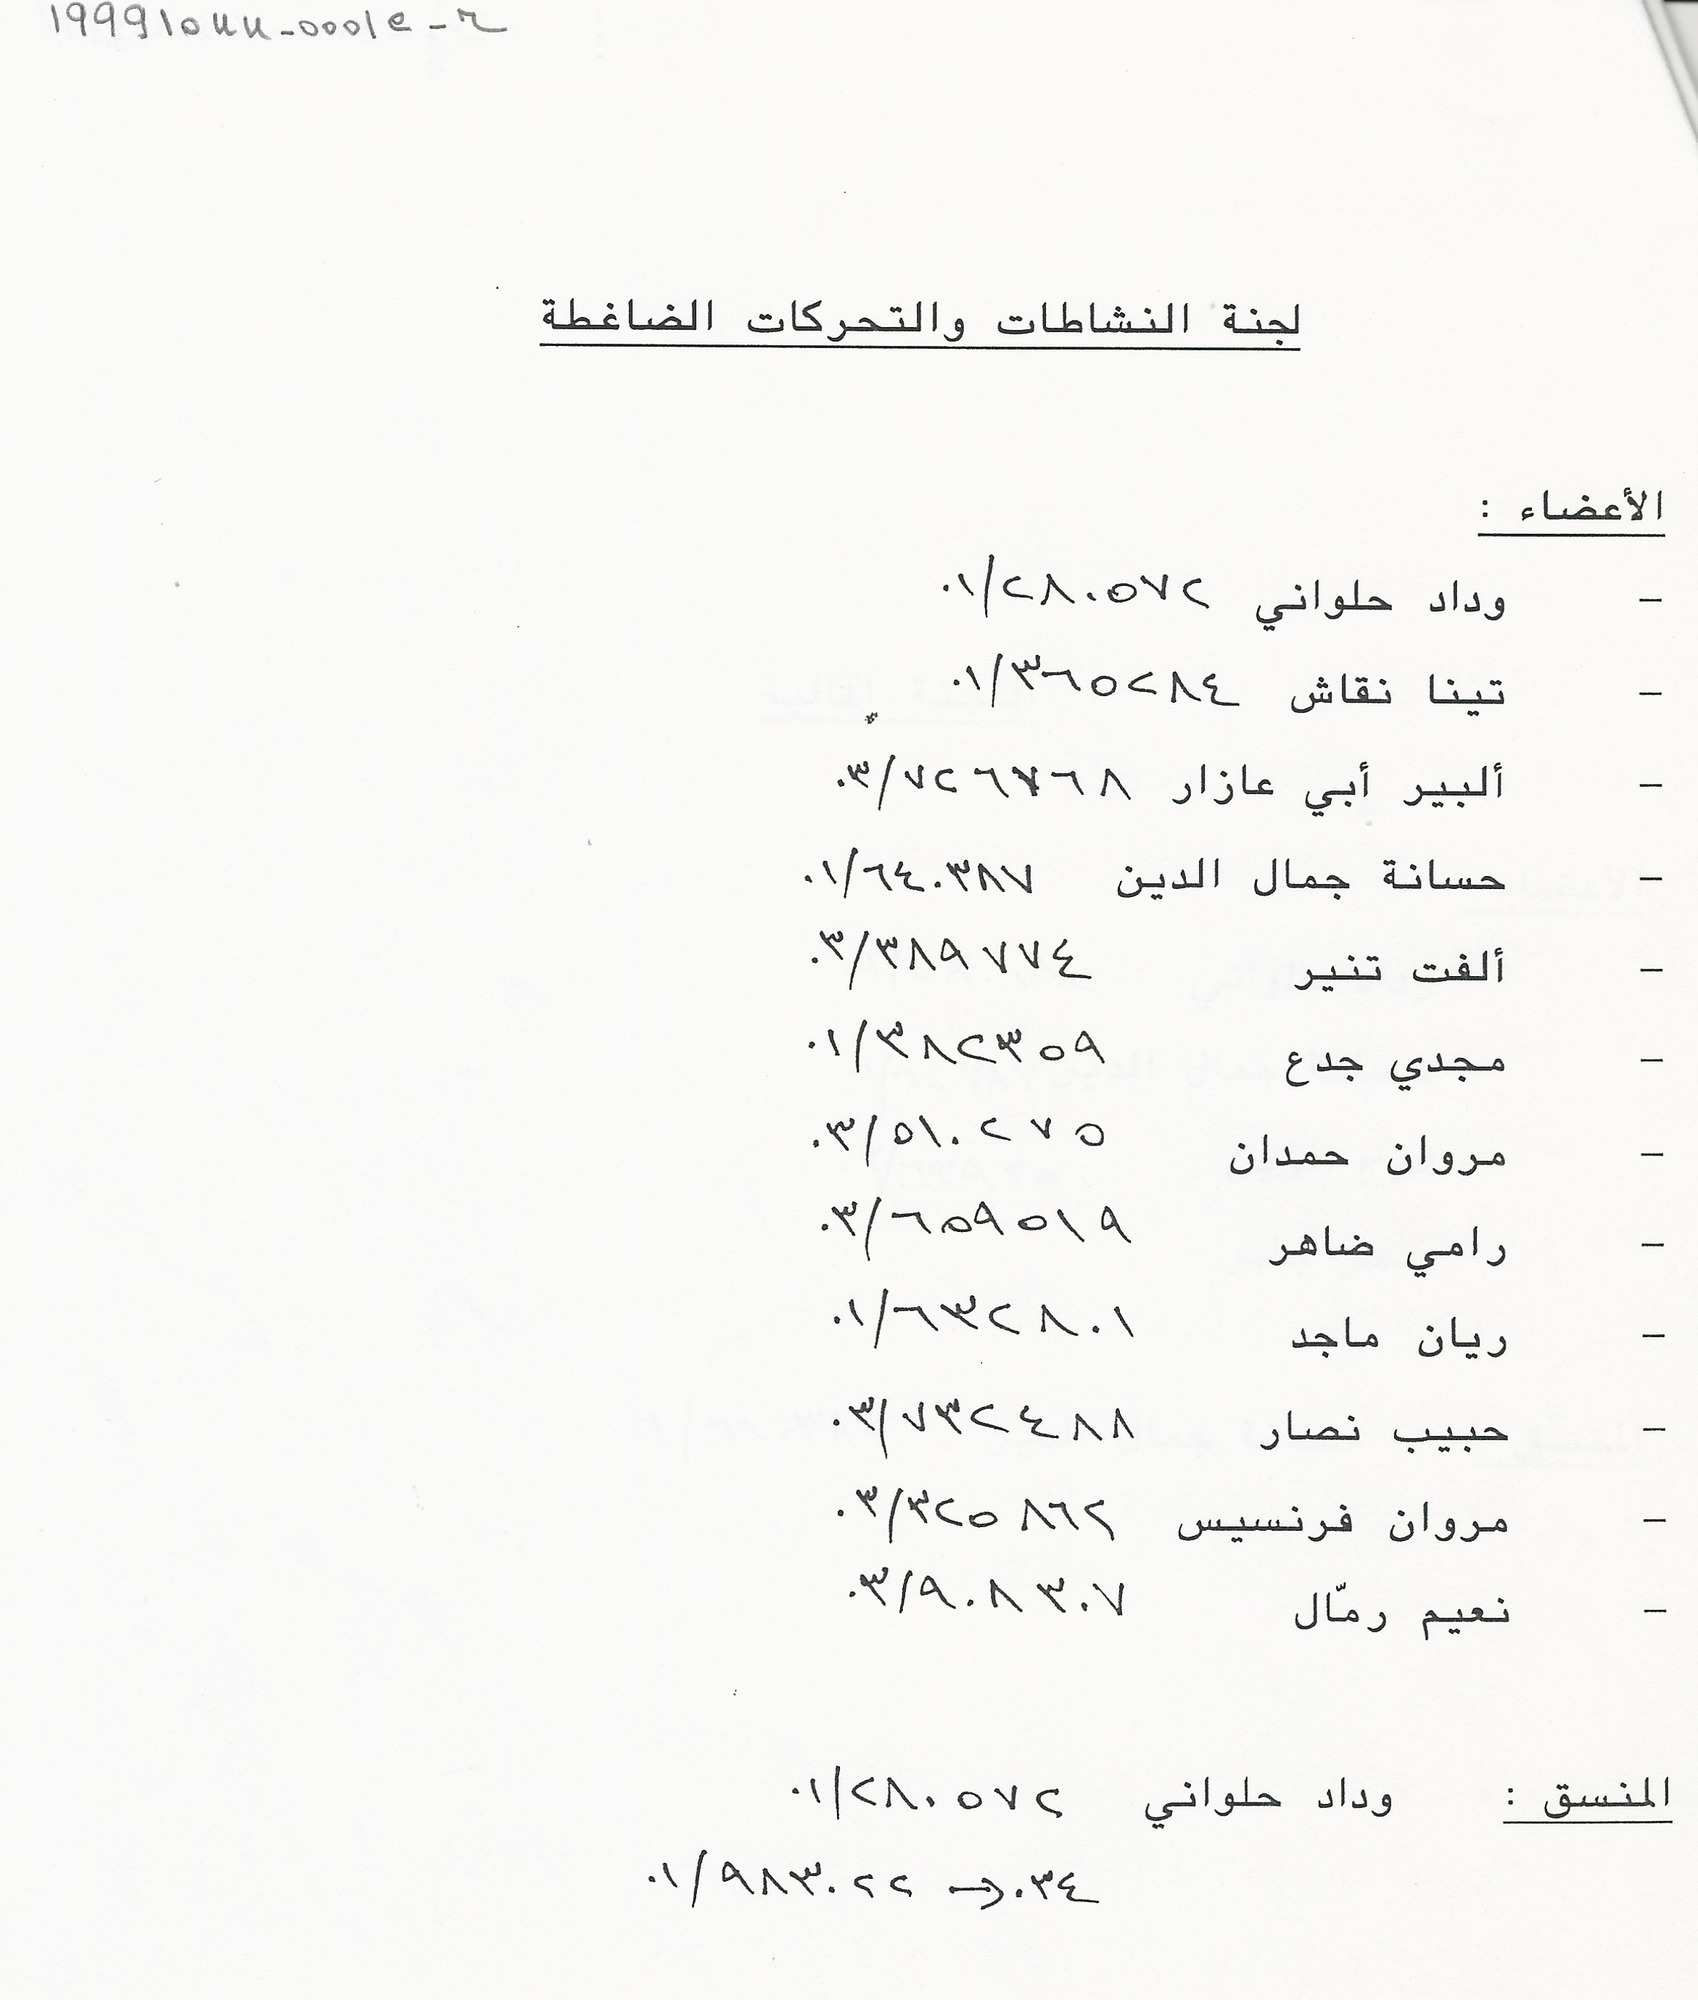 19991044-0001e-r
لجنة النشاطات والتحركات الضاغطة
الأعضاء :
- وداد حلواني ٠١/٢٨٠٥٧٢
- تينا نقاش ٠١/٣٦٥٢٨٤
- ألبير أبي عازار ٠٣/٧٢٦٧٦٨
- حسانة جمال الدين ٠١/٦٤٠٣٨٧
- ألفت تنير ٠٣/٣٨٩٧٧٤
- مجدي جدع ٠١/٣٨٢٣٥٩
- مروان حمدان ٠٣/٥١٠٢٧٥
- رامي ضاهر ٠٣/٦٥٩٥١٩
- ريان ماجد ٠١/٦٣٢٨٠١
- حبيب نصار ٠٣/٧٣٢٤٨٨
- مروان فرنسيس ٠٣/٣٢٥٨٦٢
- نعيم رمّال ٠٣/٩٠٨٣٠٧
المنسق : وداد حلواني ٠١/٢٨٠٥٧٢
٠١/٩٨٣٠٢٢ → ٠٣٤